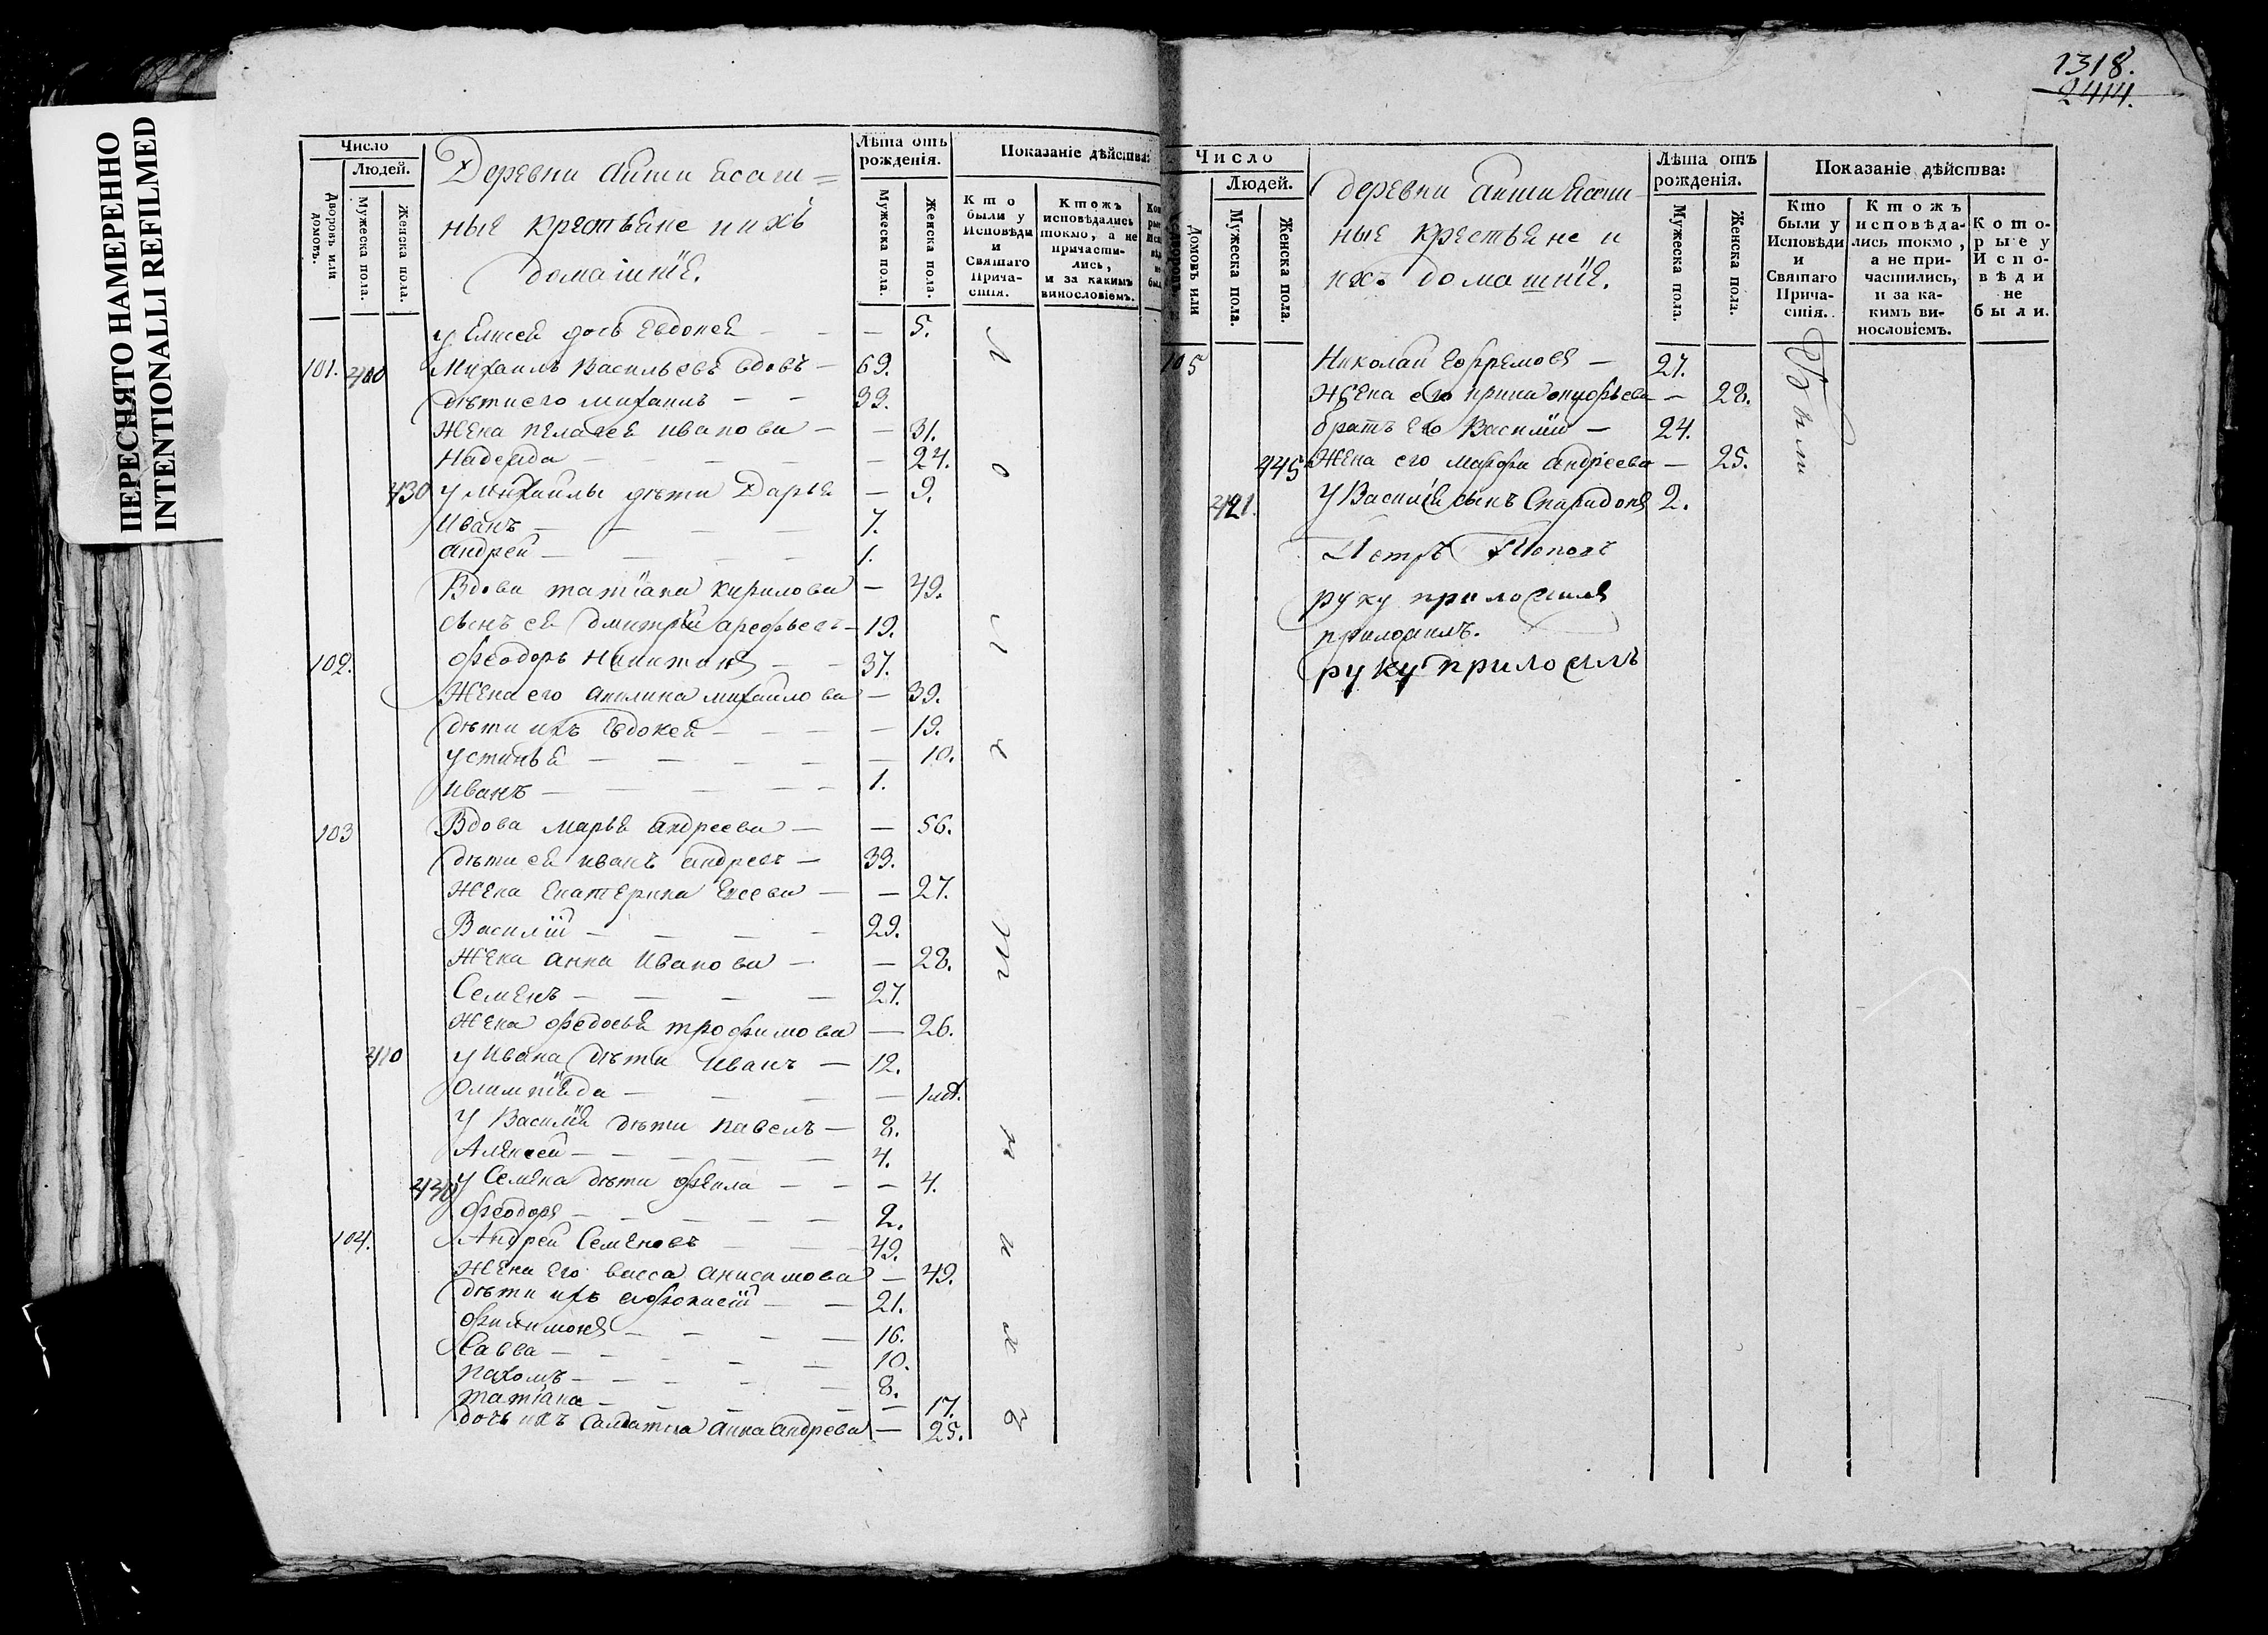 ПЕРЕСНЯТО НАМЕРЕННО
INTENTIONALLI REFILMED
Число
Людей.
Дворовъ или домовъ.
Мужеска пола.
Женска пола.
Деревни
ные крестьяне и ихъ
домашнїе.
Лѣта отъ рожденія.
Мужеска пола.
Женска пола.
Показаніе дѣйства:
Кто были у Исповѣди и Святаго Прича-стія.
Ктожъ исповѣдались токмо, а не причасти-лись, и за какимъ винословіемъ.
у Елисея дочь Евдокея — — — 5.
101. 400 Михаилъ Васильевъ вдовъ — 69.
дѣти его Михаилъ — — 33.
Жена Пелагея Иванова — — 31.
Надежда — — — — — 24.
430 у Михаилы дѣти Дарья — 9.
Иванъ — — — — 7.
Андрей — — — — 1.
Вдова татїана Кирилова — 49.
сынъ ея Дмитрей Арефьевъ — 19.
102. Феодоръ Никитинъ — — 37.
Жена его Акилина Михайлова — 39.
дѣти ихъ Евдокея — — — — 19.
устинья — — — — — — 10.
Иванъ — — — — — 1.
103 Вдова Марья Андреева — — 56.
дѣти ея Иванъ Андреевъ — 33.
Жена Екатерина — — 27.
Василїй — — — — 29.
Жена Анна Иванова — — 28.
Семенъ — — — — 27.
Жена Федосья трофимова — 26.
410 у Ивана дѣти Иванъ — 12.
Олимпїада — — — —
У Василїя дѣти Павелъ — 8.
Алексей — — — — — 4.
440 у Семена дѣти Фекла — — — 4.
Феодоръ — — — — — 2.
104. Андрей Семеновъ — — 49.
Жена Его васса Анисимова — 49.
дѣти ихъ — — 21.
Филимонъ — — — — 16.
Савва — — — — — 10.
Пахомъ — — — — — 8.
татїана — — — — — 17.
дочь ихъ Салдатка Анна Андреева — 25.
1318.
2414.
Число
Людей.
Дворовъ Домовъ или
Мужеска пола.
Женска пола.
деревни
ные Крестьяне и
ихъ домашнїе.
Лѣта отъ рожденія.
Мужеска пола.
Женска пола.
Показаніе дѣйства:
Кто были у Исповѣди и Святаго Прича-стія.
Ктожъ исповѣда-лись токмо, а не при-частились, и за ка-кимъ ви-нословіемъ.
Кото-рые у Испо-вѣди не были.
Были
105 Николай Ефремовъ — 27.
Жена его — 28.
братъ Его Василїй — 24.
445 Жена его Марфа Андреева — 25.
421. У Василїя сынъ Спиридонъ 2.
Петръ Поповъ
руку приложилъ
приложилъ.
руку приложилъ